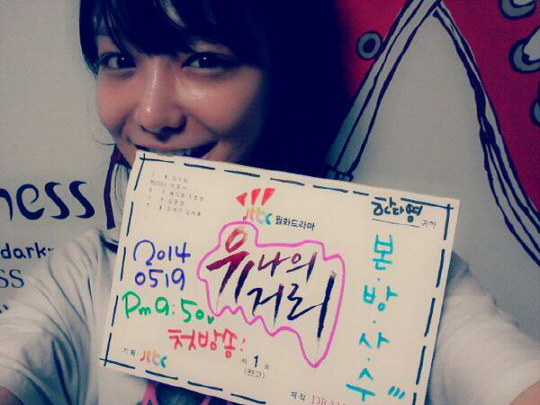 ness
dark-
SS
jtbc 월화드라마
유나의
거리
2014
0519
Pm 9:50
첫방송!
기획 jtbc
제 1 회
제작 DRA
한다영 귀하
본·방·사·수